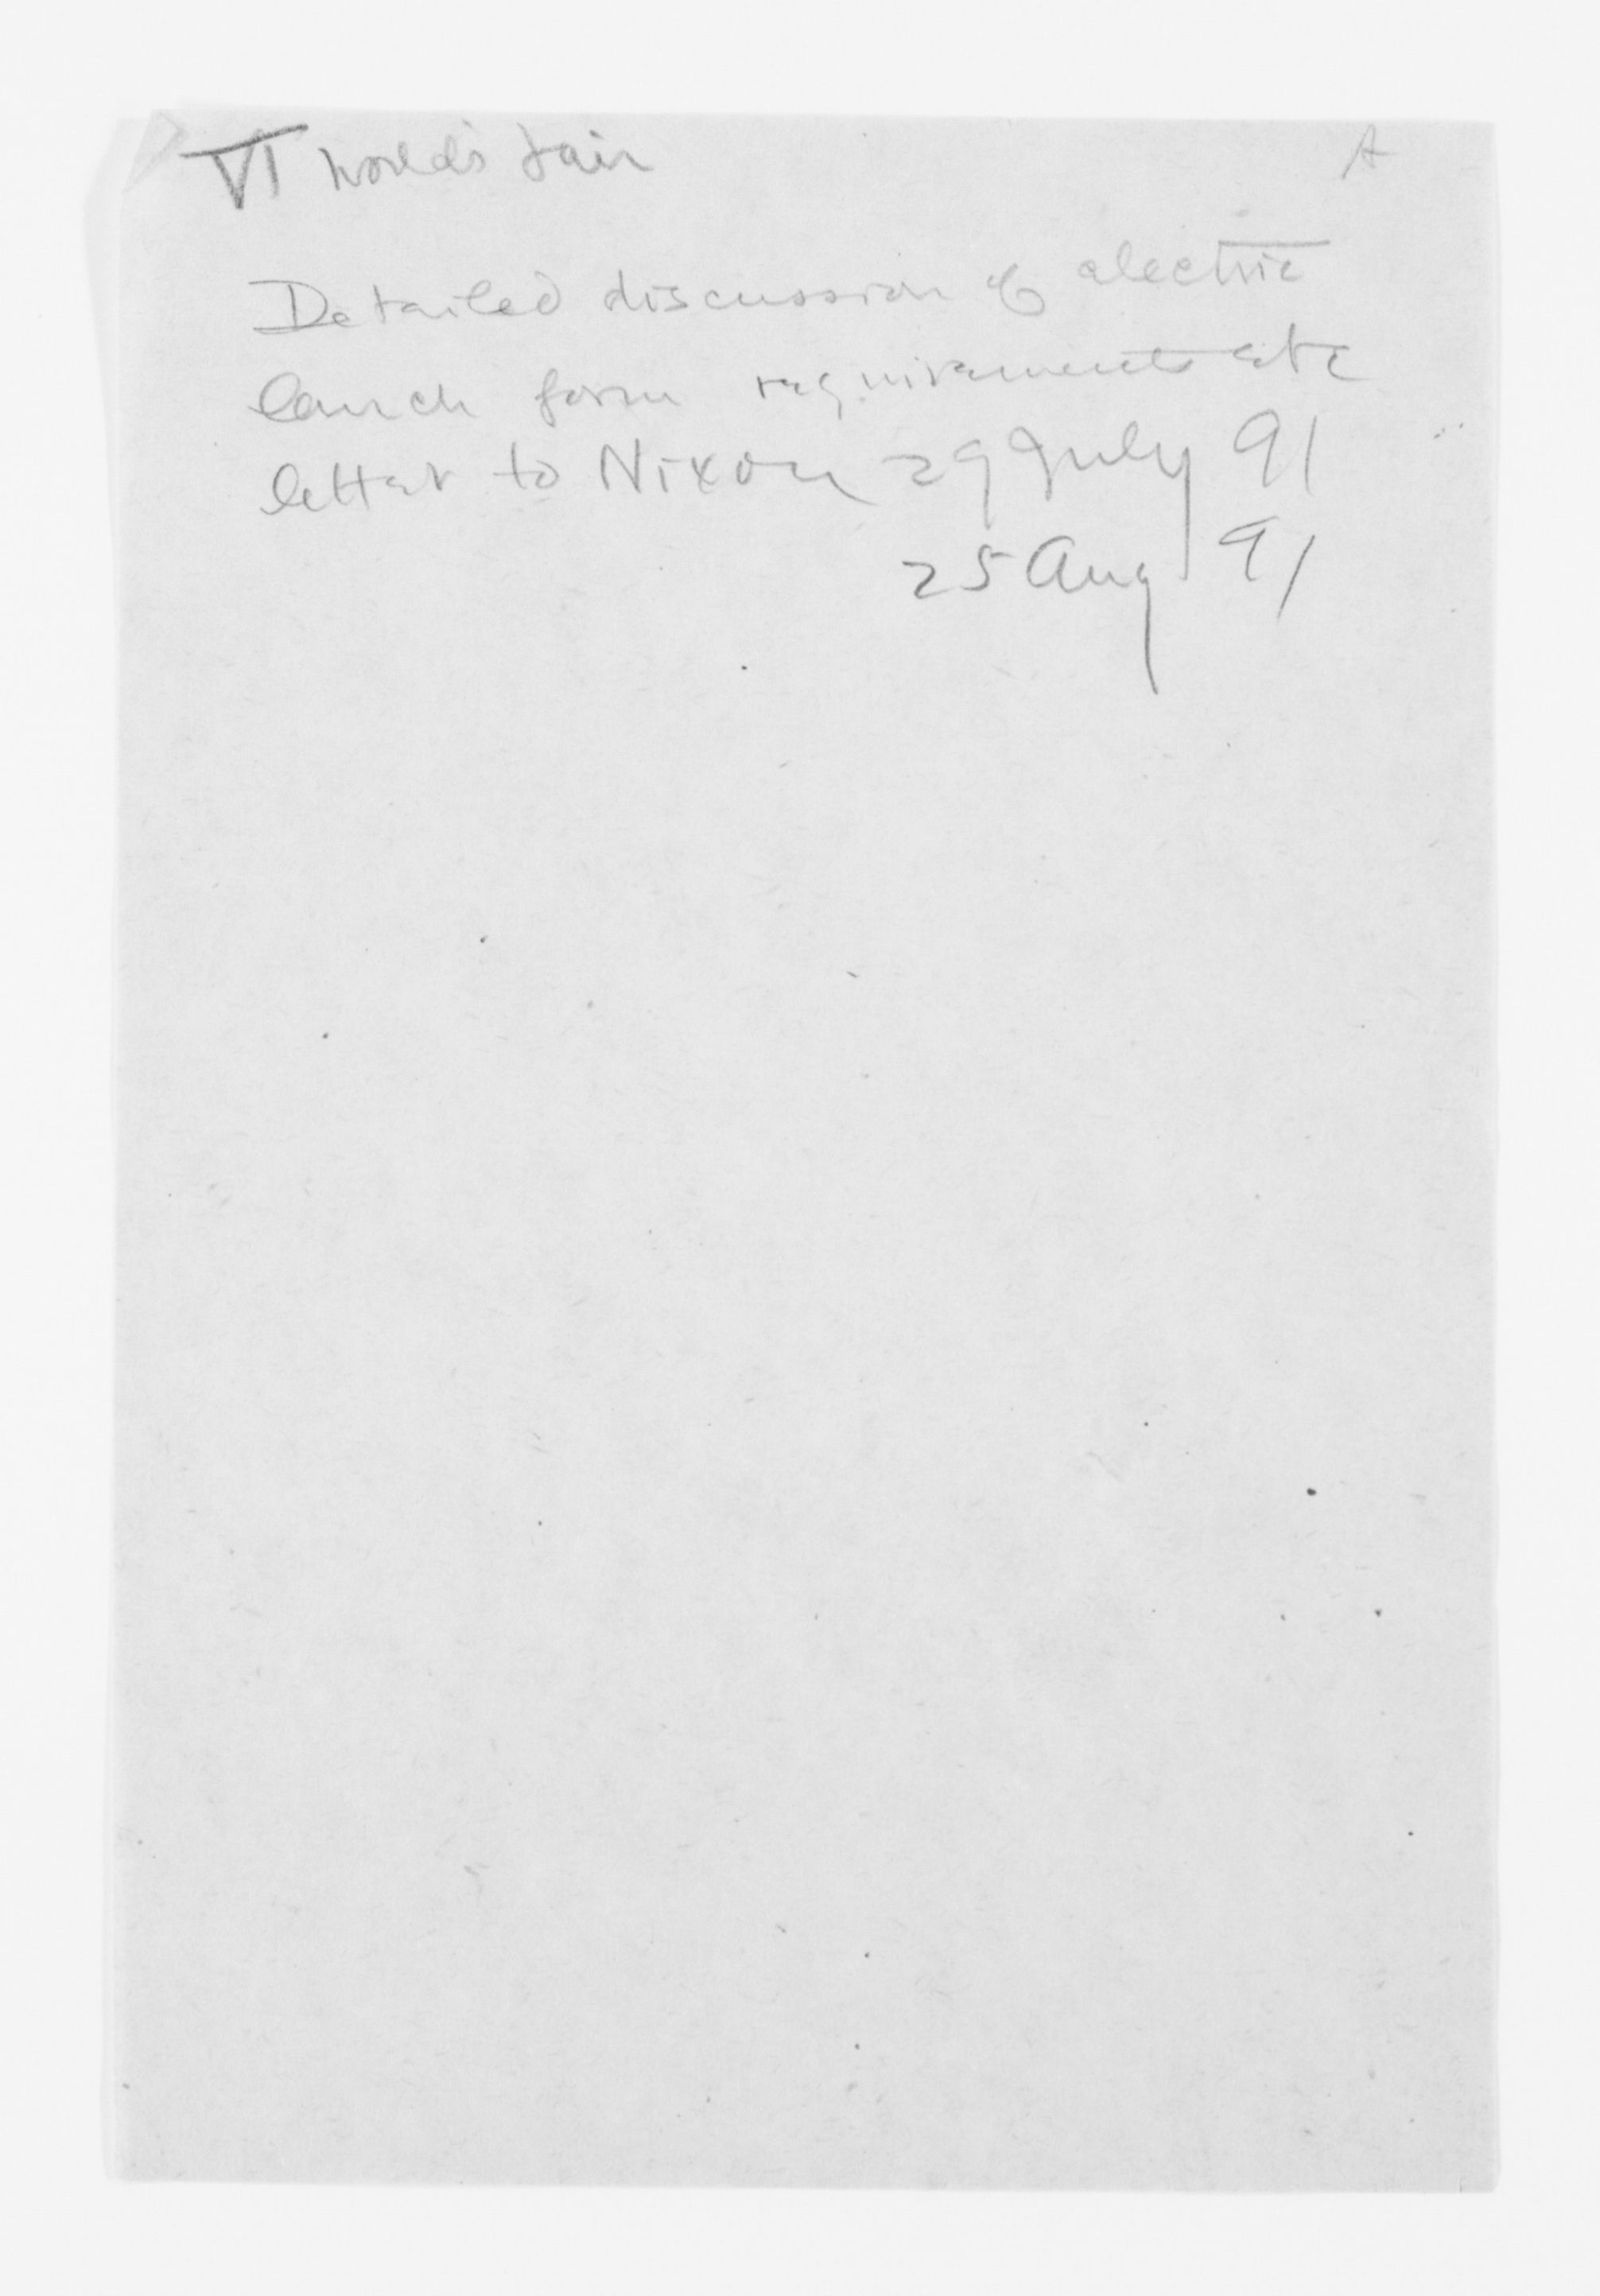 VI World's Fair A
Detailed discussion of electric
launch form requirements etc
letter to Nixon 29 July 91
25 Aug 91